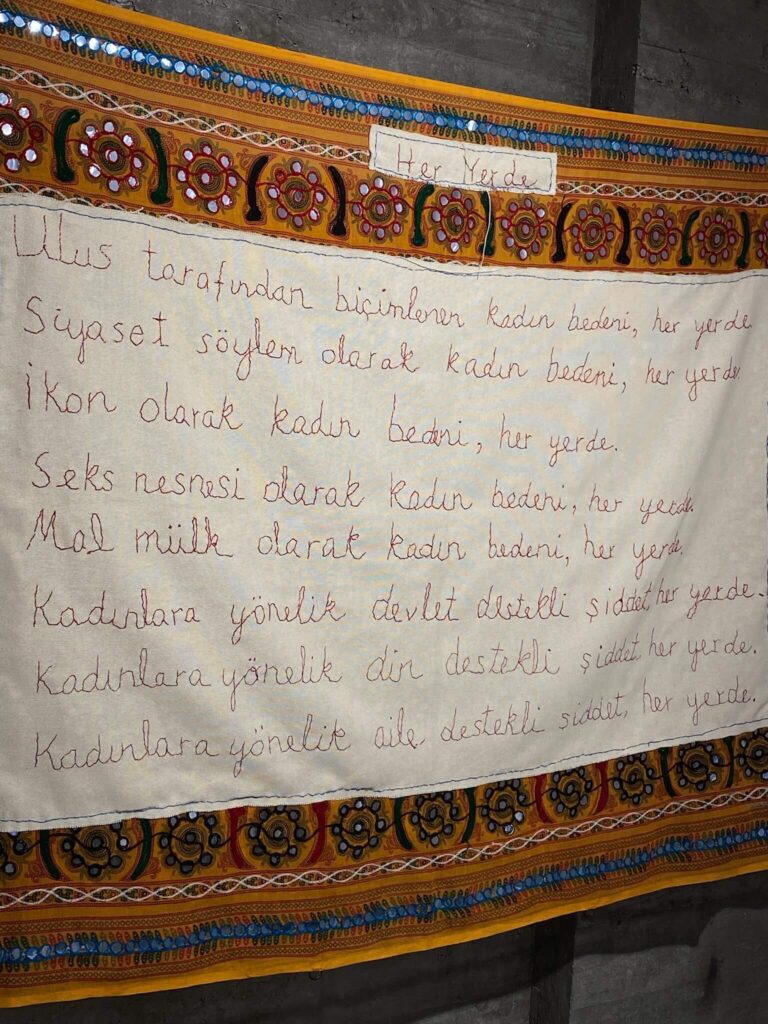 Her Yerde
Ulus tarafından biçimlenen kadın bedeni, her yerde.
Siyaset söylem olarak kadın bedeni, her yerde.
İkon olarak kadın bedeni, her yerde.
Seks nesnesi olarak kadın bedeni, her yerde.
Mal mülk olarak kadın bedeni, her yerde.
Kadınlara yönelik devlet destekli şiddet, her yerde.
Kadınlara yönelik din destekli şiddet, her yerde.
Kadınlara yönelik aile destekli şiddet, her yerde.